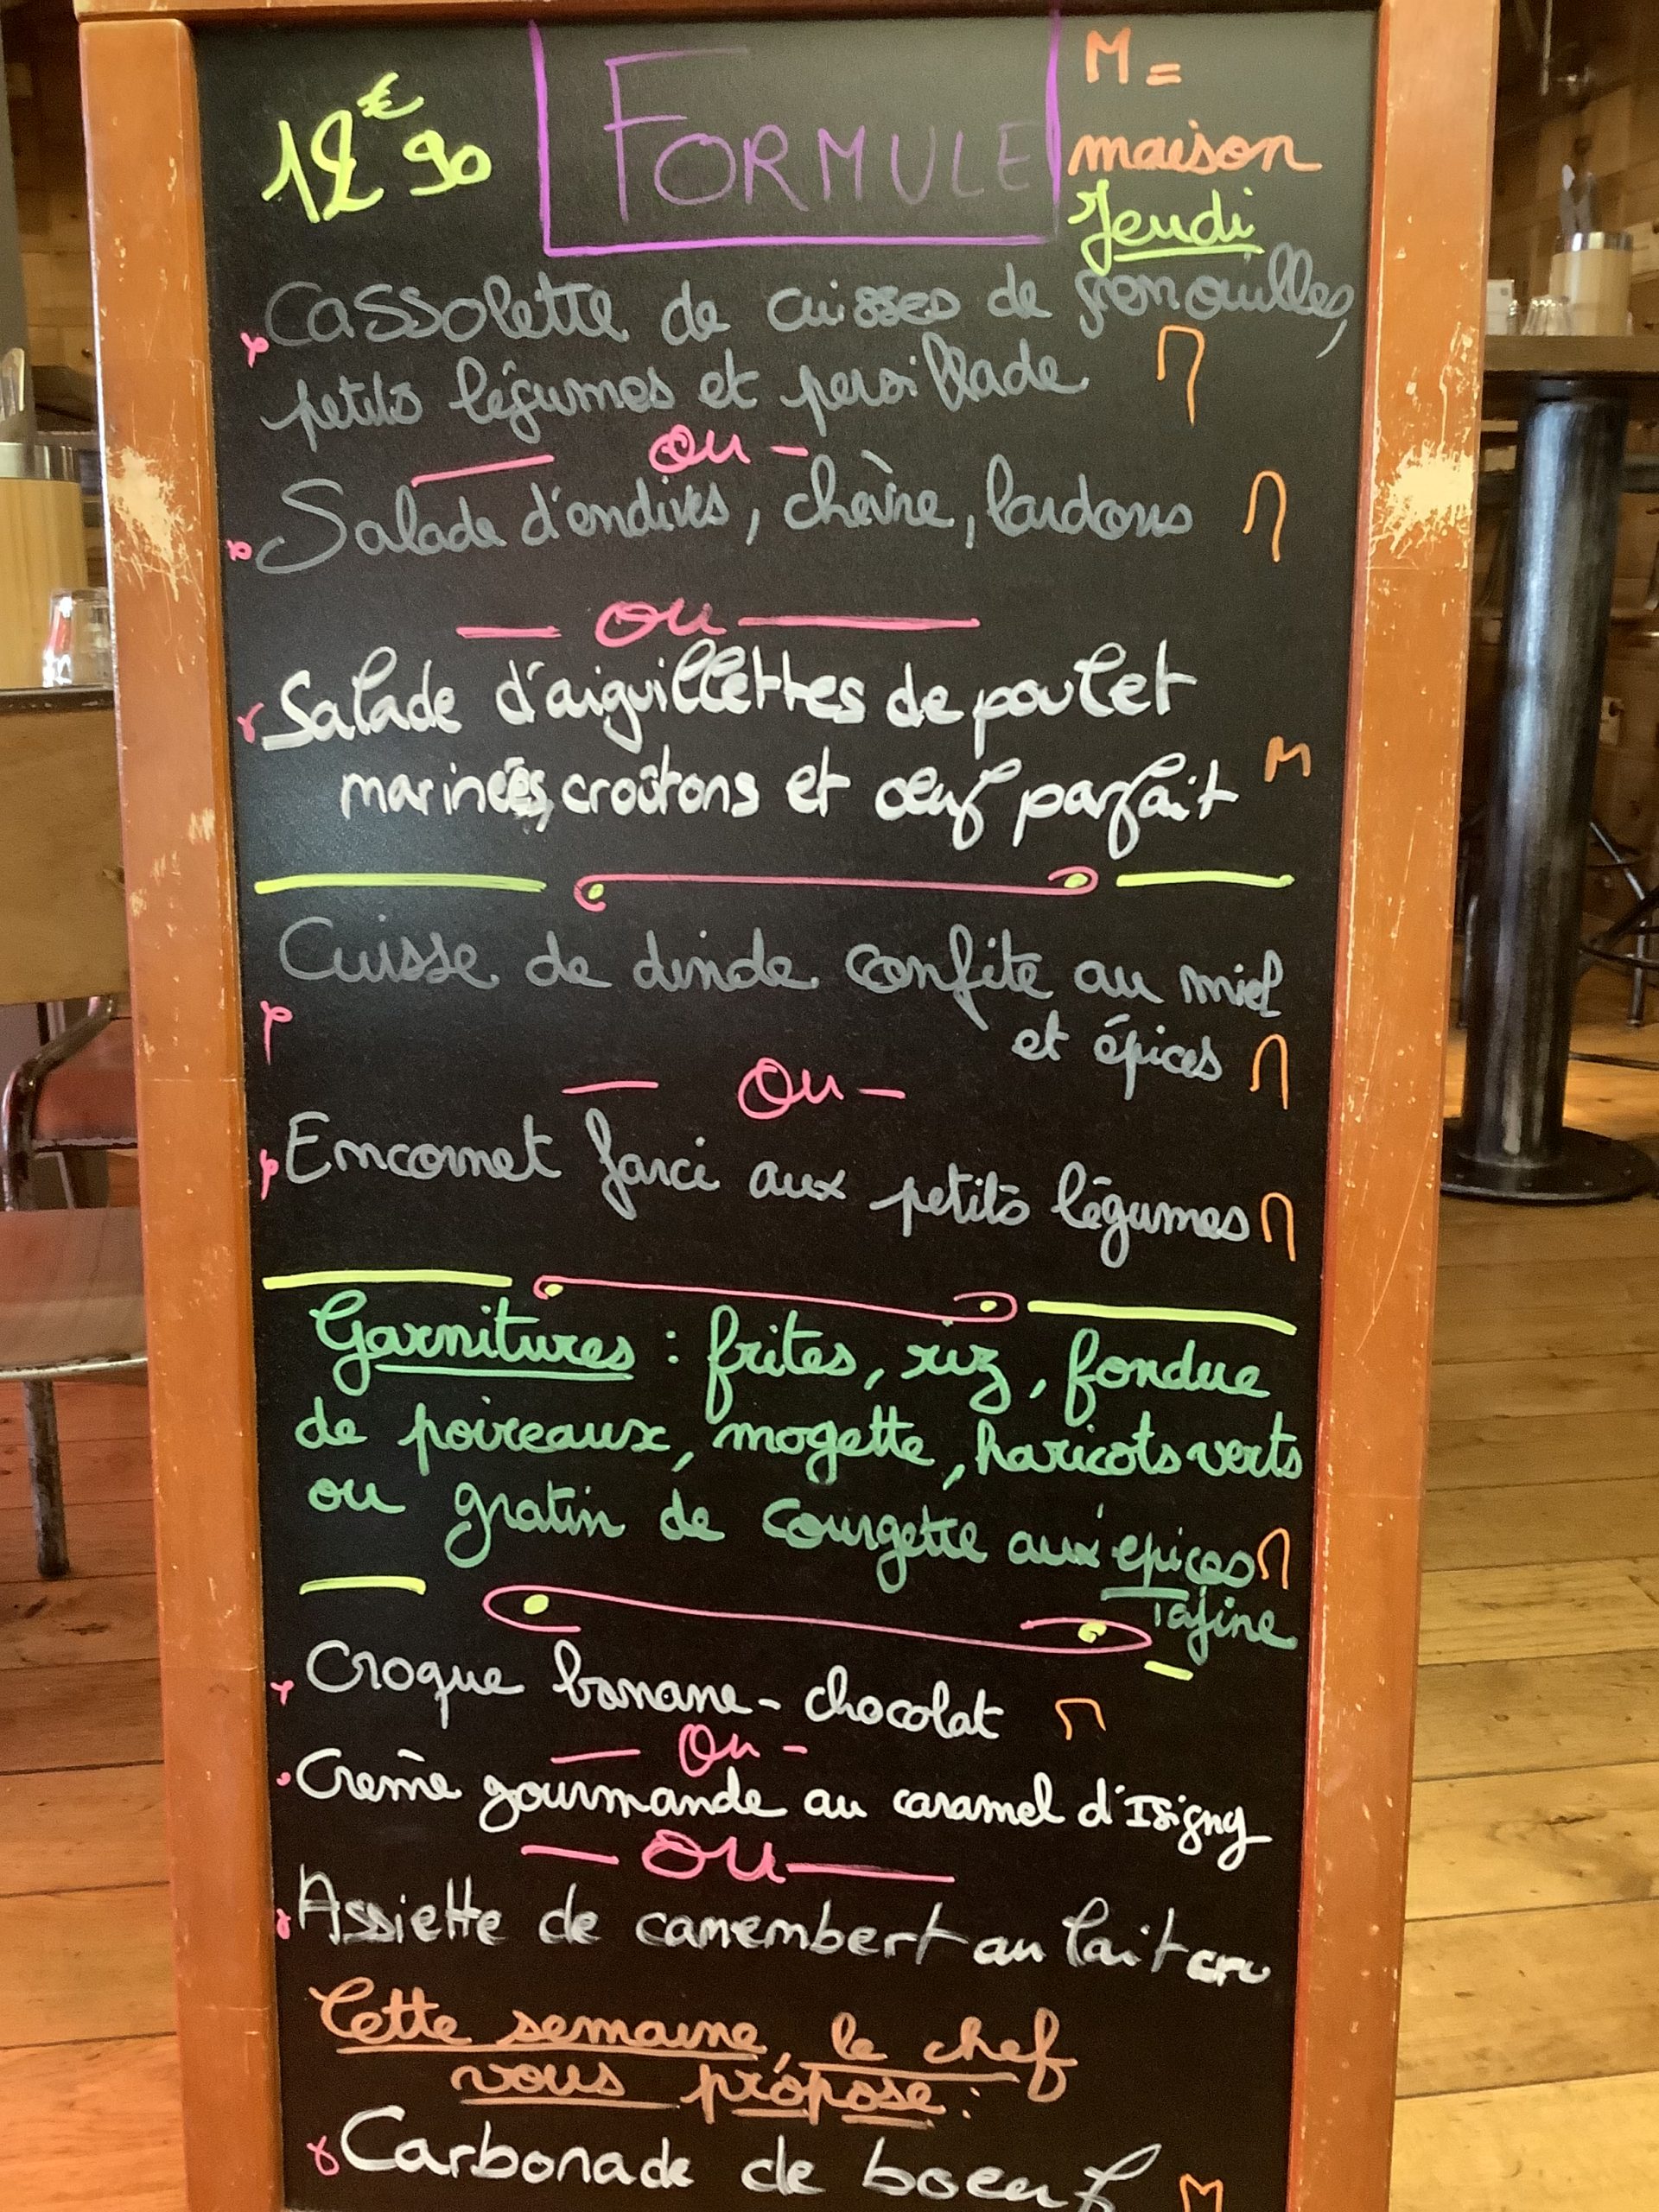 12€90
FORMULE
M =
maison
Jeudi
Cassolette de cuisses de grenouilles,
petits légumes et persillade M
- ou -
Salade d'endives, chèvre, lardons M
- ou -
Salade d'aiguillettes de poulet
marinées, croûtons et œuf parfait M
Cuisse de dinde confite au miel
et épices M
- Ou -
Encornet farci aux petits légumes M
Garnitures : frites, riz, fondue
de poireaux, mogette, haricots verts
ou gratin de courgette aux épices M
Tajine
Croque banane - chocolat M
- Ou -
Crème gourmande au caramel d'Isigny
- OU -
Assiette de camembert au lait cru
Cette semaine, le chef
vous propose :
Carbonade de boeuf M